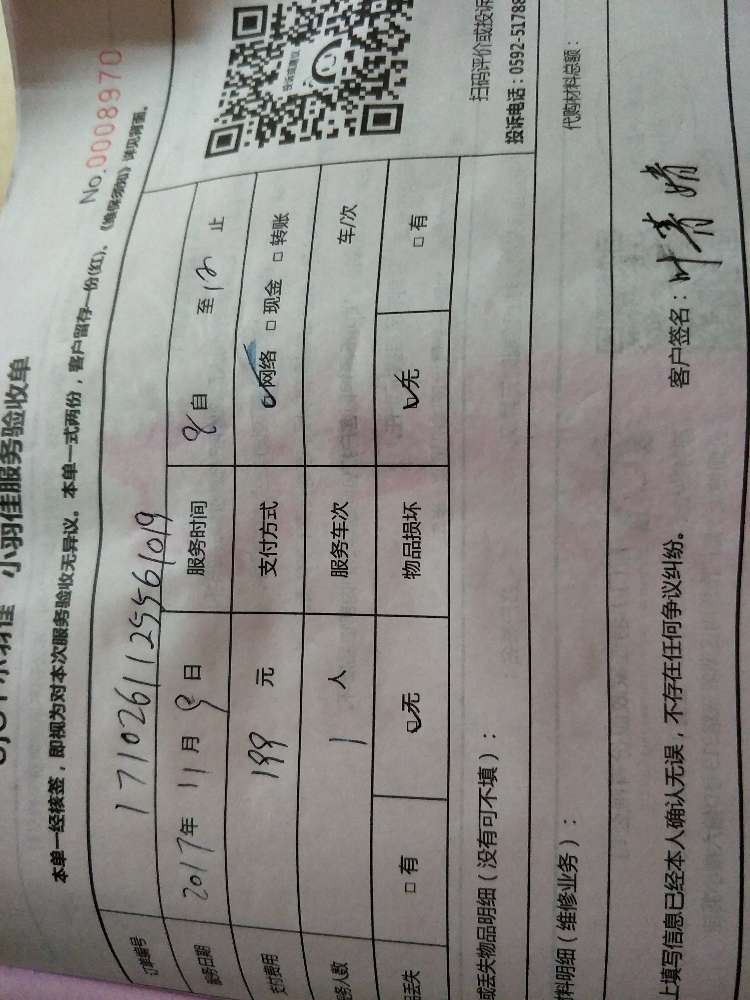 小羽佳服务验收单
No.0008970
本单一经核签，即视为对本次服务验收无异议。本单一式两份，客户留存一份(红)。《维保须知》详见背面。
订单编号 1710261125561019
服务日期 2017年 11月 9日 服务时间 9自 至12 止
支付费用 199 元 支付方式 网络 □ 现金 □ 转账
务人数 1 人 服务车次 车/次
品丢失 □ 有 □ 无 物品损坏 □ 无 □ 有
投诉或建议
扫码评价或投诉
投诉电话：0592-51788
或丢失物品明细（没有可不填）：
料明细（维修业务）：
代购材料总额：
上填写信息已经本人确认无误，不存在任何争议纠纷。
客户签名：叶青婧